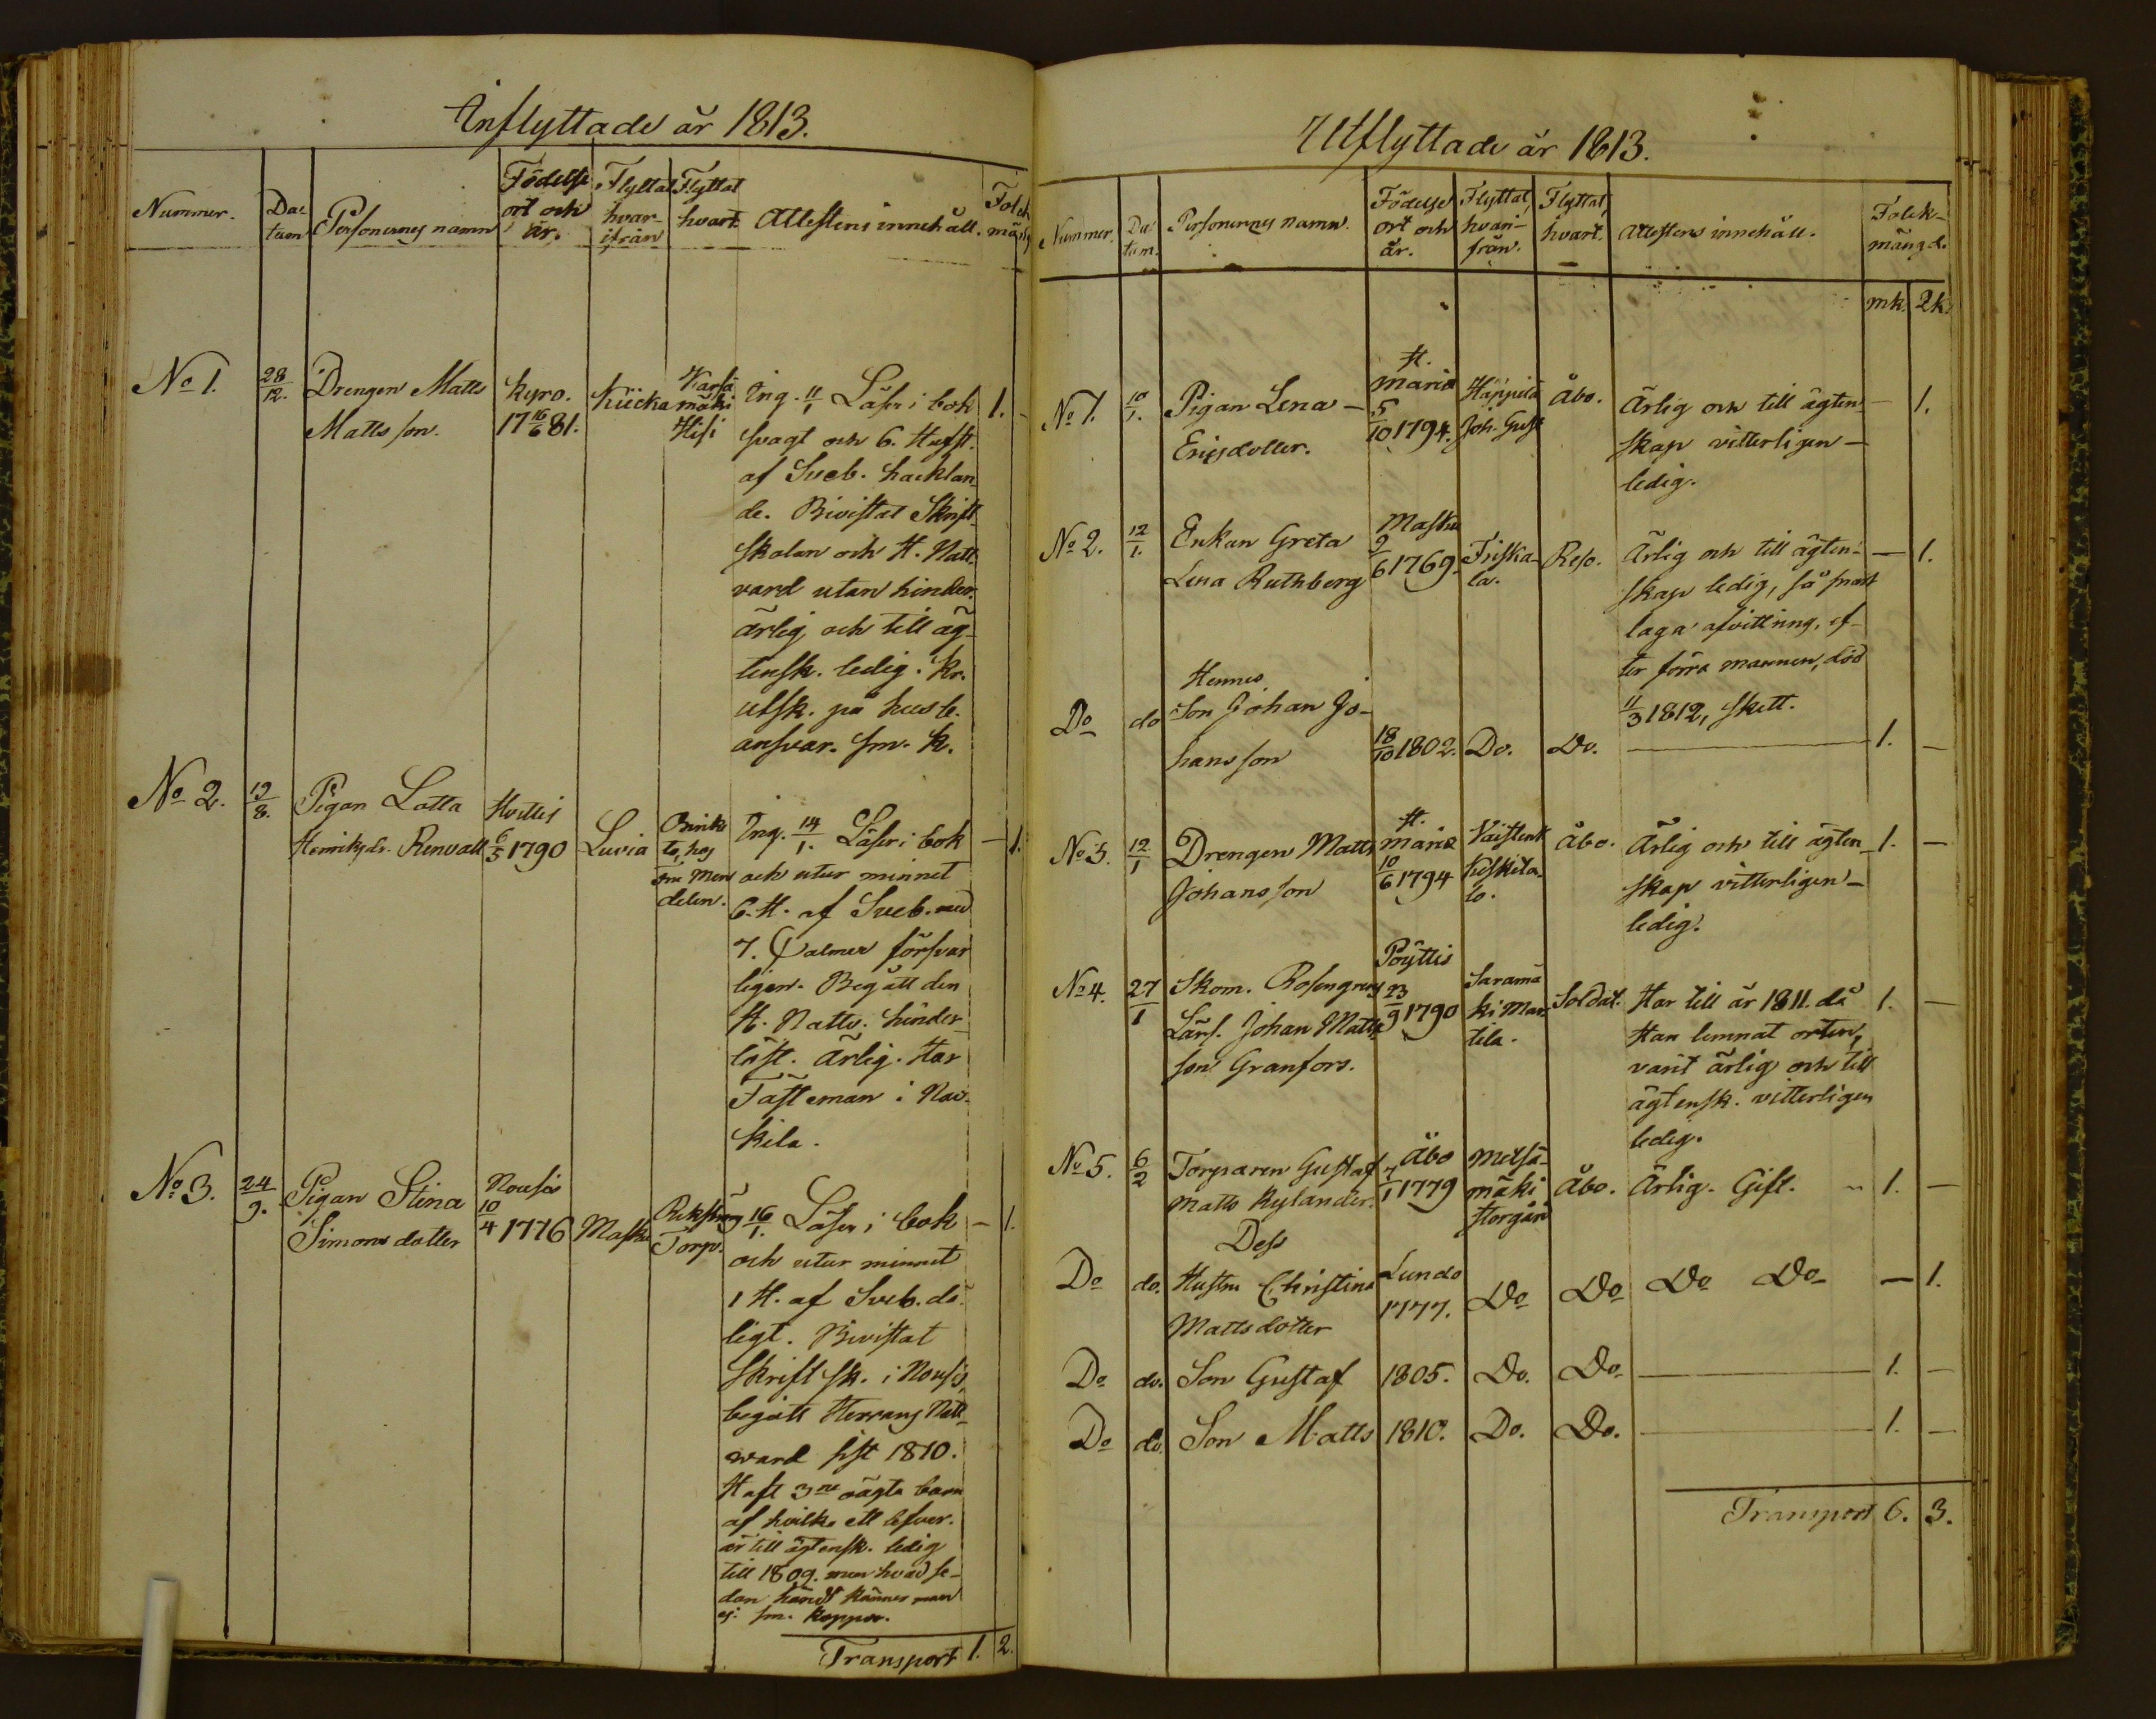 Inflyttade år 1813.
Nummer. Da=
tum Personernas namn Födelse
ort och
år. Flyttat
hvar-
ifrån Flyttat
hvart Attestens innehåll. Folck
mängd
No 1. 28/12. Drengen Matts
Matts son. Kyro.
17 16/6 81. Kiicka
mäki
Hisi
Ing. 11/1 Läser i bok 1. -
svagt och 6. Hufst.
af Sveb. hacklan-
de. Bivistat Skrift
skolan och H. Natt-
vard utan hinder.
ärlig och till äg-
tensk. ledig. Kr.
utsk. på husb.
ansvar. sm. K.
No 2. 19/8. Pigan Lotta
Henriksdr. Renvall Hvittis
6/5 1790 Luvia
delen.
Ing. 14/1. Läser i bok - 1.
och utur minnet
6. H. af Sveb. med
7. Psalmer försvar
ligen. Begått den
H. Nattv. hinder-
löst. Ärlig. Har
Fästeman i Nau-
kila.
No 3. 24/9. Pigan Stina
Simons dotter Nousis
10/4 1776 Masku
Torp.
16/1. Läser i bok - 1.
och utur minnet
1 H. af Sveb. då-
ligt. Bivistat
Skrift sk. i Nousis,
begått Herrans Natt-
ward sist 1810.
Haft 3ne oägta barn
af hvilka ett lefver.
är till ägtensk. ledig
till 1809. men hvad se-
dan händt känner man
ej. sm. Koppor.
Transport 1. 2.
Utflyttade år 1813.
Nummer. Da
tum. Personernas namn. Födelse
ort och
år. Flyttat,
hvari-
från. Flyttat,
hvart. Attestens innehåll. Folck-
mängd.
mk. 2k.
No 1. 10/1. Pigan Lena
Ericsdotter. St.
Maria
5/10 1794. Häppilä
Joh. Gust Åbo. Ärlig och till ägten- - 1.
skap vitterligen -
ledig.
No 2. 12/1. Enkan Greta
Lena Ruthberg Masku
9/6 1769. Friska-
la. Reso. Ärlig och till ägten- - 1.
skap ledig, så snart
laga afvittring, ef-
ter förra mannen, död
11/3 1812, skett.
Do do Hennes
Son Johan Jo-
hansson 18/10 1802. Do. Do. 1. -
No 3. 12/1 Drengen Matts
Johansson St.
Maria
10/6 1794 Åbo. Ärlig och till ägten 1. -
skap vitterligen -
ledig.
No 4. 27/1 Skom. Rosengrens
Lärl. Johan Matts
son Granfors. Pöyttis
23/9 1790 Saramä
ki Mar
tila. Soldat. Har till år 1811. då 1. -
Han lemnat orten,
varit ärlig och till
ägtensk. vitterligen
ledig.
No 5. 6/2 Torparen Gustaf
Matts Rylander. Åbo
7/1 1779 Metsä-
mäki
Storgård Åbo. Ärlig. Gift. 1. -
Do do. Dess
Hustru Christina
Mattsdotter Lundo
1777. Do Do Do Do - 1.
Do do. Son Gustaf 1805. Do. Do. 1. -
Do do. Son Matts 1810. Do. Do. 1. -
Transport 6. 3.